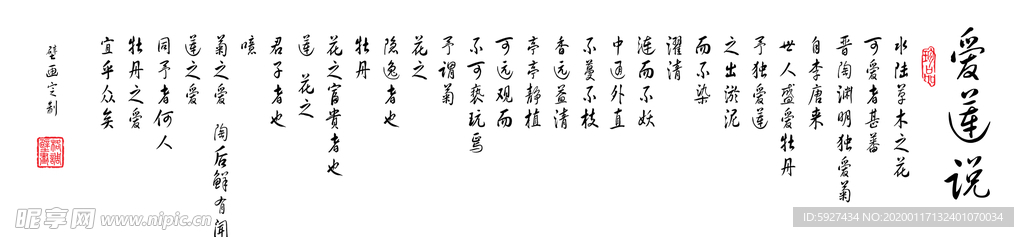 爱莲说
水陆草木之花
可爱者甚蕃
晋陶渊明独爱菊
自李唐来
世人盛爱牡丹
予独爱莲
之出淤泥
而不染
濯清
涟而不妖
中通外直
不蔓不枝
香远益清
亭亭静植
可远观而
不可亵玩焉
予谓菊
花之
隐逸者也
牡丹
花之富贵者也
莲 花之
君子者也
噫
菊之爱 陶后鲜有闻
莲之爱
同予者何人
牡丹之爱
宜乎众矣
壁画定制
昵享网 www.nipic.cn
ID:5927434 NO:20200117132401070034